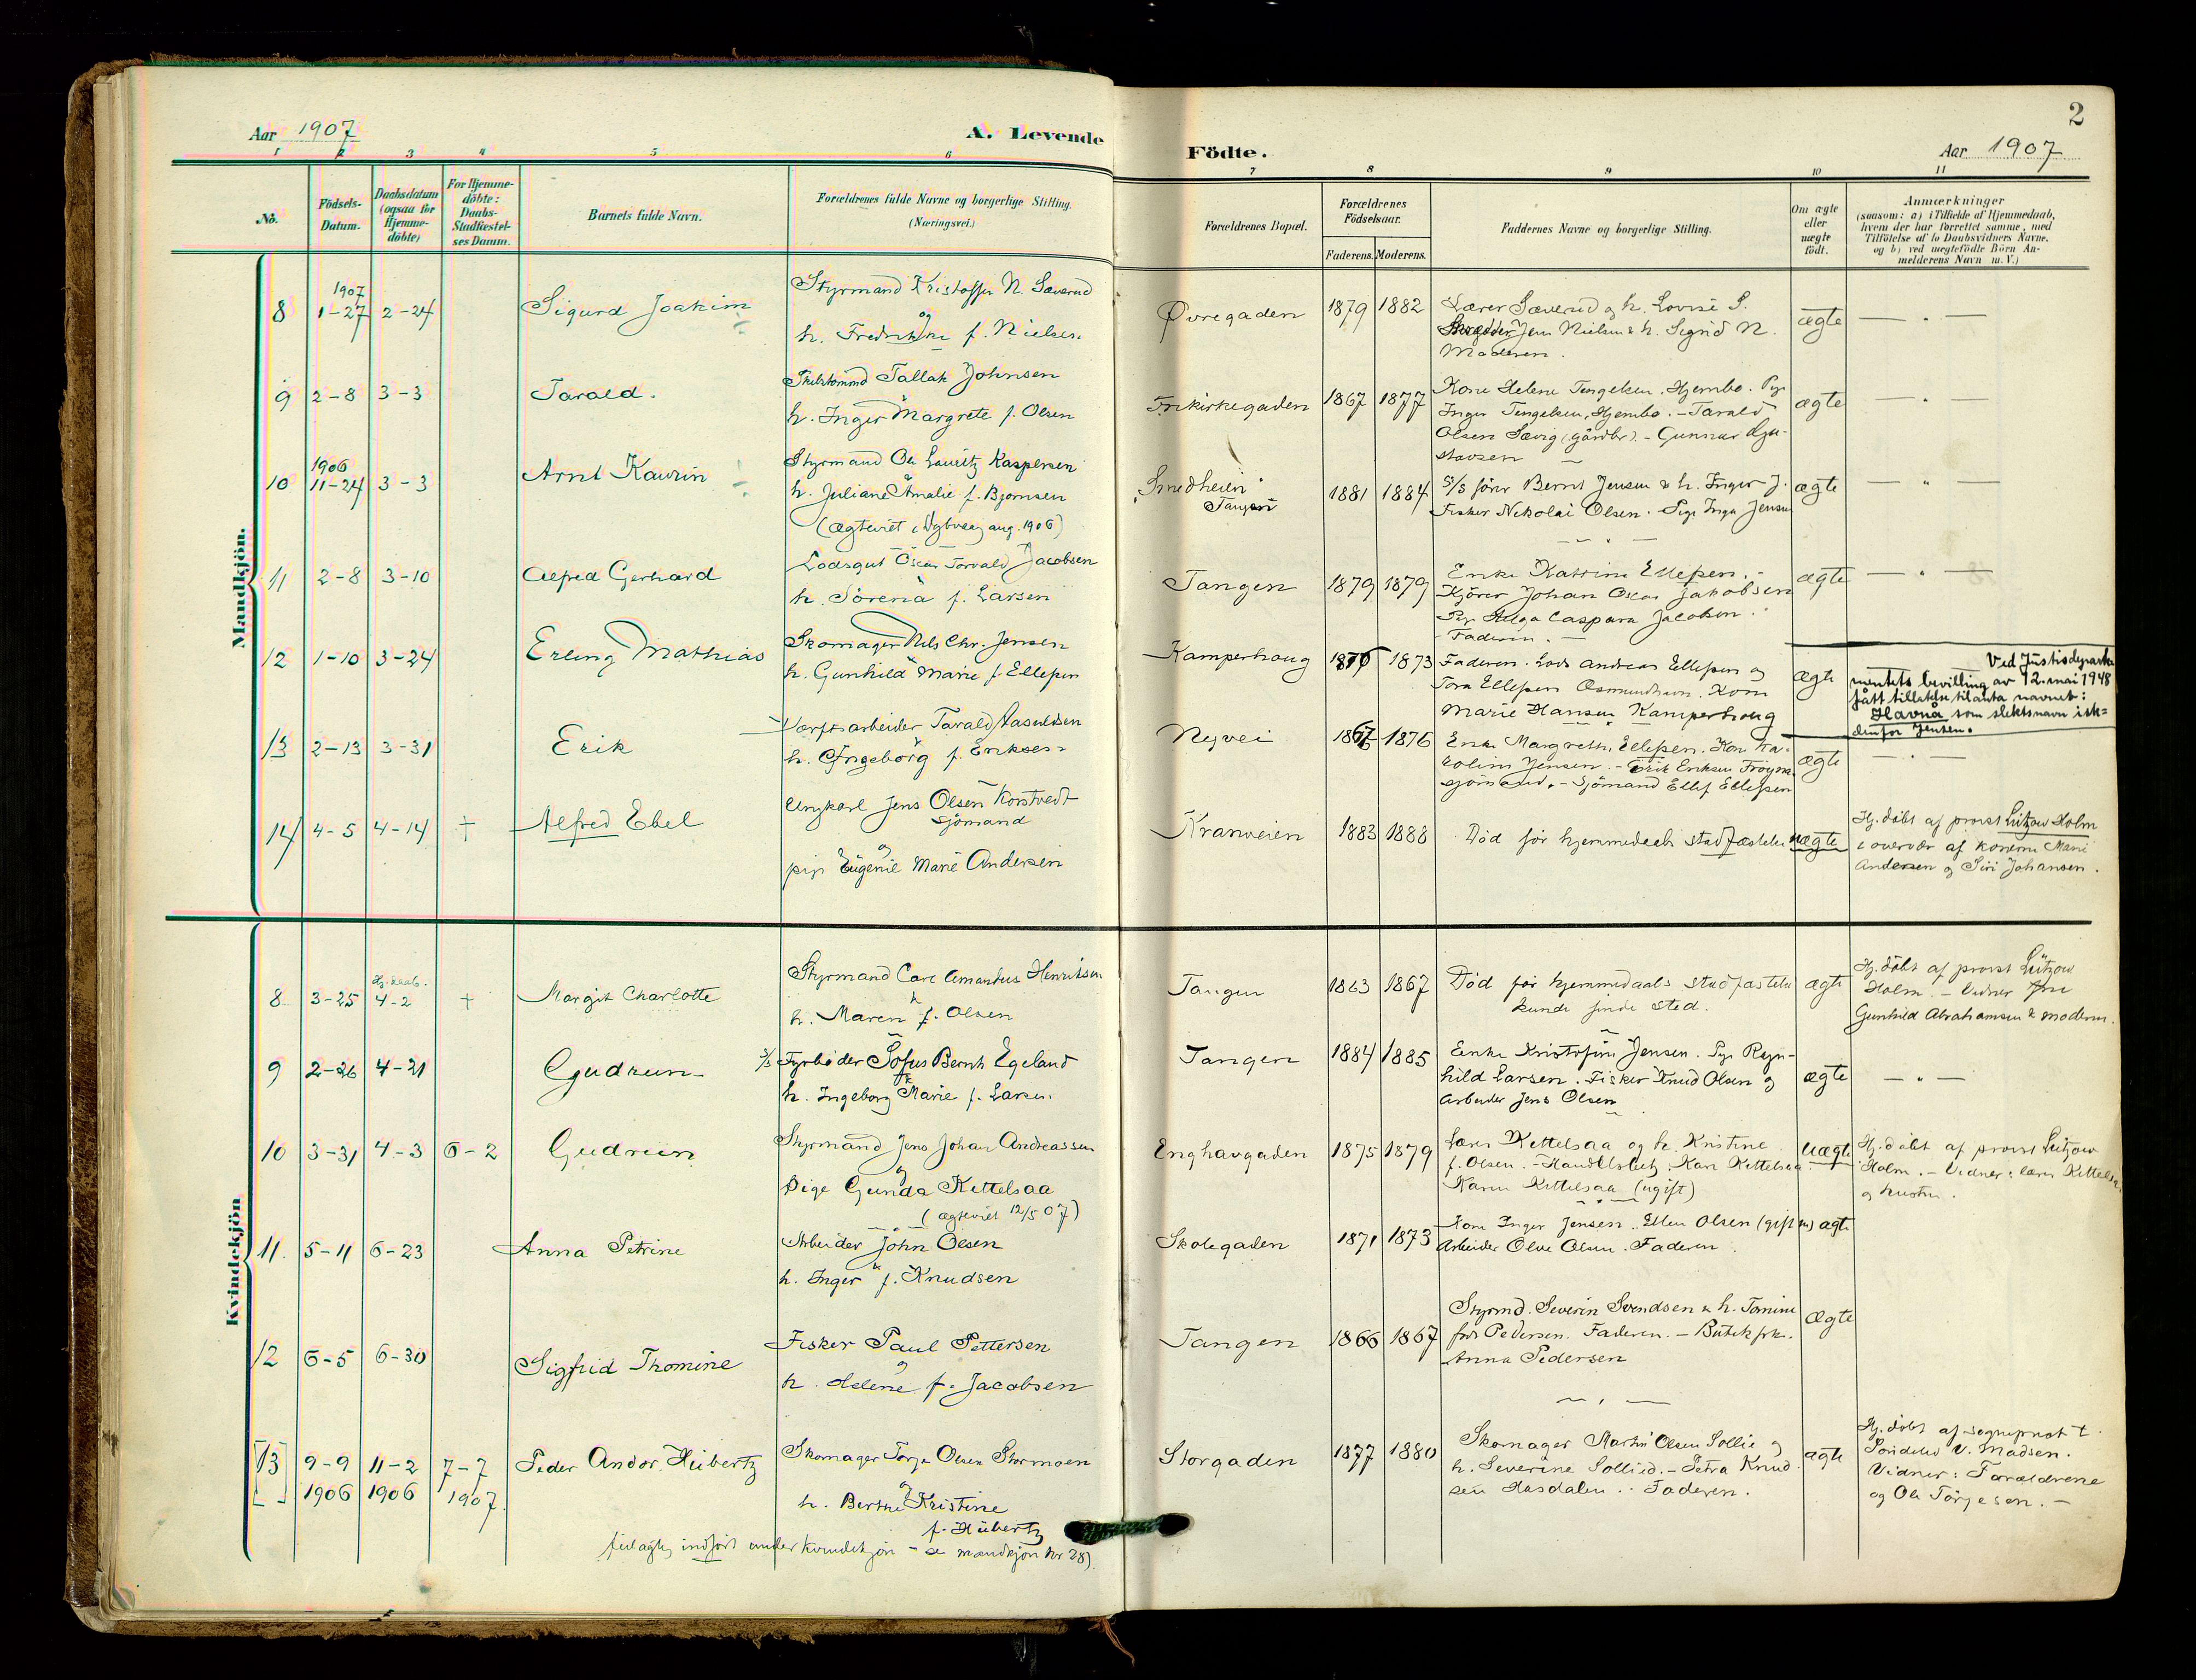 2
Aar 1907
A. Levende
Födte.
Aar 1907
1 2 3 4 5 6 7 8 9 10 11
No.
Födsels-Datum.
Daabsdatum (ogsaa for Hjemme-döbte)
For Hjemme-döbte: Daabs-Stadfæstel-ses Datum.
Barnets fulde Navn.
Forældrenes fulde Navne og borgerlige Stilling.
(Næringsvei.)
Forældrenes Bopæl.
Forældrenes Födselsaar.
Faderens. Moderens.
Faddernes Navne og borgerlige Stilling.
Om ægte eller uægte födt.
Anmærkninger
(saasom: a) i Tilfælde af Hjemmedaab,
hvem der har forrettet samme, med
Tilföielse af to Daabsvidners Navne,
og b) ved uægtefödte Börn An-
melderens Navn m. V.)
Mandkjön.
8 1907 1-27 2-24 Sigurd Joakim
Styrmand Kristoffer N. Sæverud
og
h. Fredrikke f. Nielsen
Øvregaden 1879 1882
Lærer Sæverud og h. Lovise S.
Jens Nielsen & h. Sigrid N.
Moderen.
ægte — " —
9 2-8 3-3 Tarald.
Tallak Johnsen
h. Inger Margrete f. Olsen
Frikirkegaden 1867 1877
Kone Helene Tengelsen, Hjembo. Pige
Inger Tengelsen, Hjembo. - Tarald
Olsen Sævig (gårdbr). - Gunnar Gju-
stavsen
ægte — " —
10 1906 11-24 3-3 Arnt Kaurin
Styrmand Ole Lauritz Kaspersen
h. Juliane Amalie f. Bjørnsen
(ægteviet i Dybvaag aug. 1906)
Smedheien
Tangen
1881 1884
S/S fører Bernt Jensen & h. Inger J.
Fisker Nikolai Olsen. Pige Inga Jensen
ægte — " —
11 2-8 3-10 Alfred Gerhard
Lodsgut Oscar Torvald Jacobsen
h. Sörena f. Larsen
Tangen 1879 1879
Enke Katrine Ellefsen. -
Kjörer Johan Oscar Jakobsen
Pige Helga Caspara Jacobsen.
Faderen. —
ægte — " —
12 1-10 3-24 Erling Mathias
Skomager Nils Chr. Jensen
h. Gunhild Marie f. Ellefsen
Kamperhoug 1876 1873
Faderen. Lods Andreas Ellefsen og
Tora Ellefsen Osmundsen. Kone
Marie Hansen Kamperhoug
ægte
Ved Justisdeparte
mentets bevilling av 12. mai 1948
fått tillatelse til anta navnet:
Havnå som slektsnavn iste-
denfor Jensen.
13 2-13 3-31 Erik
Værftsarbeider Tarald Aasulfsen
h. Ingeborg f. Eriksen
Nyvei 1867 1876
Enke Margrethe Ellefsen. Kone Ka-
roline Jensen. - Erik Eriksen
sjömand. - Sjömand Ellef Ellefsen
ægte — " —
14 4-5 4-14 + Alfred Ebel
Ungkarl Jens Olsen Korstvedt
sjömand
og
pige Eugenie Marie Andersen
Kranveien 1883 1888
Död för hjemmedaab stadfæstelse
uægte
Hj. döbt af provst Lützow Holm
i overvær af konerne Marie
Andersen og Siri Johansen.
Kvindekjön
8 3-25 Hj. daab. 4-2 + Margit Charlotte
Styrmand Carl Amandus Henriksen
&
h. Maren f. Olsen
Tangen 1863 1867
Död för hjemmedaabs stadfæstelse
kunde finde sted.
ægte
Hj. döbt af provst Lützow
Holm. - Vidner
Gunhild Abrahamsen & moderen.
9 2-26 4-21 Gudrun
S/S Fyrböder Sofus Bernh Egeland
h. Ingeborg Marie f. Larsen.
Tangen 1884 1885
Enke Kristofine Jensen. Pige Ragn-
hild Larsen. Fisker Knud Olsen og
Arbeider Jens Olsen
ægte — " —
10 3-31 4-3 6-2 Gudrun
Styrmand Jens Johan Andreassen
og
Pige Gunda Kettelsaa
(ægteviet 12/5 07)
Enghavgaden 1875 1879
Lærer Kettelsaa og h. Kristine
f. Olsen. - Karl Kettelsaa
Karen Kittelsaa (ugift)
Uægte
Hj. döbt af provst Lützow
Holm. - Vidner: lærer Kittelsaa
og hustru.
11. 5-11 6-23 Anna Petrine
Arbeider John Olsen
&
h. Inger f. Knudsen
Skolegaden 1871 1873
Kone Inger Jensen. Ellen Olsen (gift)
Arbeider Olve Olsen. Faderen.
ægte
12 6-5 6-30 Sigfrid Thomine
Fisker Paul Pettersen
og
h. Helene f. Jacobsen
Tangen 1866 1867
Styrmd. Severin Svendsen & h. Tomine
född Pedersen. Faderen. - Butikfrk.
Anna Pedersen
Ægte
[13] 9-9 1906 11-2 1906 7-7 1907. Peder Andor Hübertz
Skomager Torje Olsen Stormoen
og
h. Berthe Kristine
f. Hübertz
Storgaden 1877 1880
Skomager Martin Olsen Sollie og
h. Severine Sollied. - Petra Knud-
sen Hasdalen. - Faderen.
ægte
Hj. döbt af sogneprest t.
Söndeled V. Madsen.
Vidner: Forældrene
og Ole Törjesen. -
feilagtig indfört under kvindekjön - se mandkjön Nr 28)